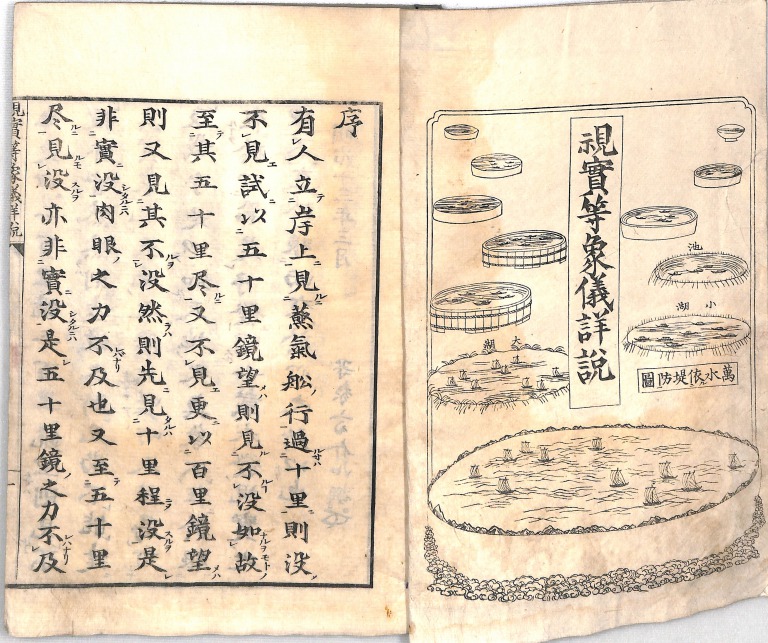 視實等象儀詳說
池
小湖
大湖
萬水依堤防圖
序
有人立岸上見蒸氣舩行過十里則没
不見試以五十里鏡望則見不没如故
至其五十里尽又不見更以百里鏡望
則又見其不没然則先見十里程没是
非實没肉眼之力不及也又至五十里
尽見没亦非實没是五十里鏡之力不及
視實等象儀詳說
一